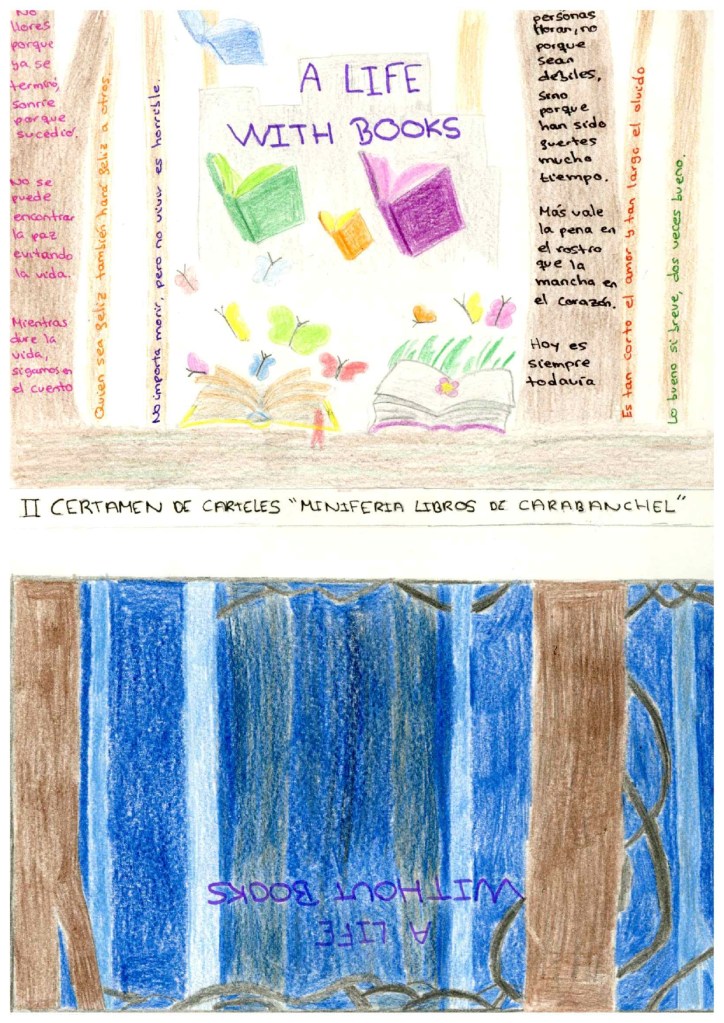 No
llores
porque
ya se
terminó,
sonríe
porque
sucedió.
No se
puede
encontrar
la paz
evitando
la vida.
Mientras
dure la
vida,
sigamos en
el cuento
Quien sea feliz también hará feliz a otros.
No importa morir, pero no vivir es horrible.
A LIFE
WITH BOOKS
personas
lloran, no
porque
sean
débiles,
sino
porque
han sido
fuertes
mucho
tiempo.
Más vale
la pena en
el rostro
que la
mancha en
el corazón.
Hoy es
siempre
todavía
Es tan corto el amor y tan largo el olvido
Lo bueno si breve, dos veces bueno.
II CERTAMEN DE CARTELES "MINIFERIA LIBROS DE CARABANCHEL"
A LIFE
WITHOUT BOOKS